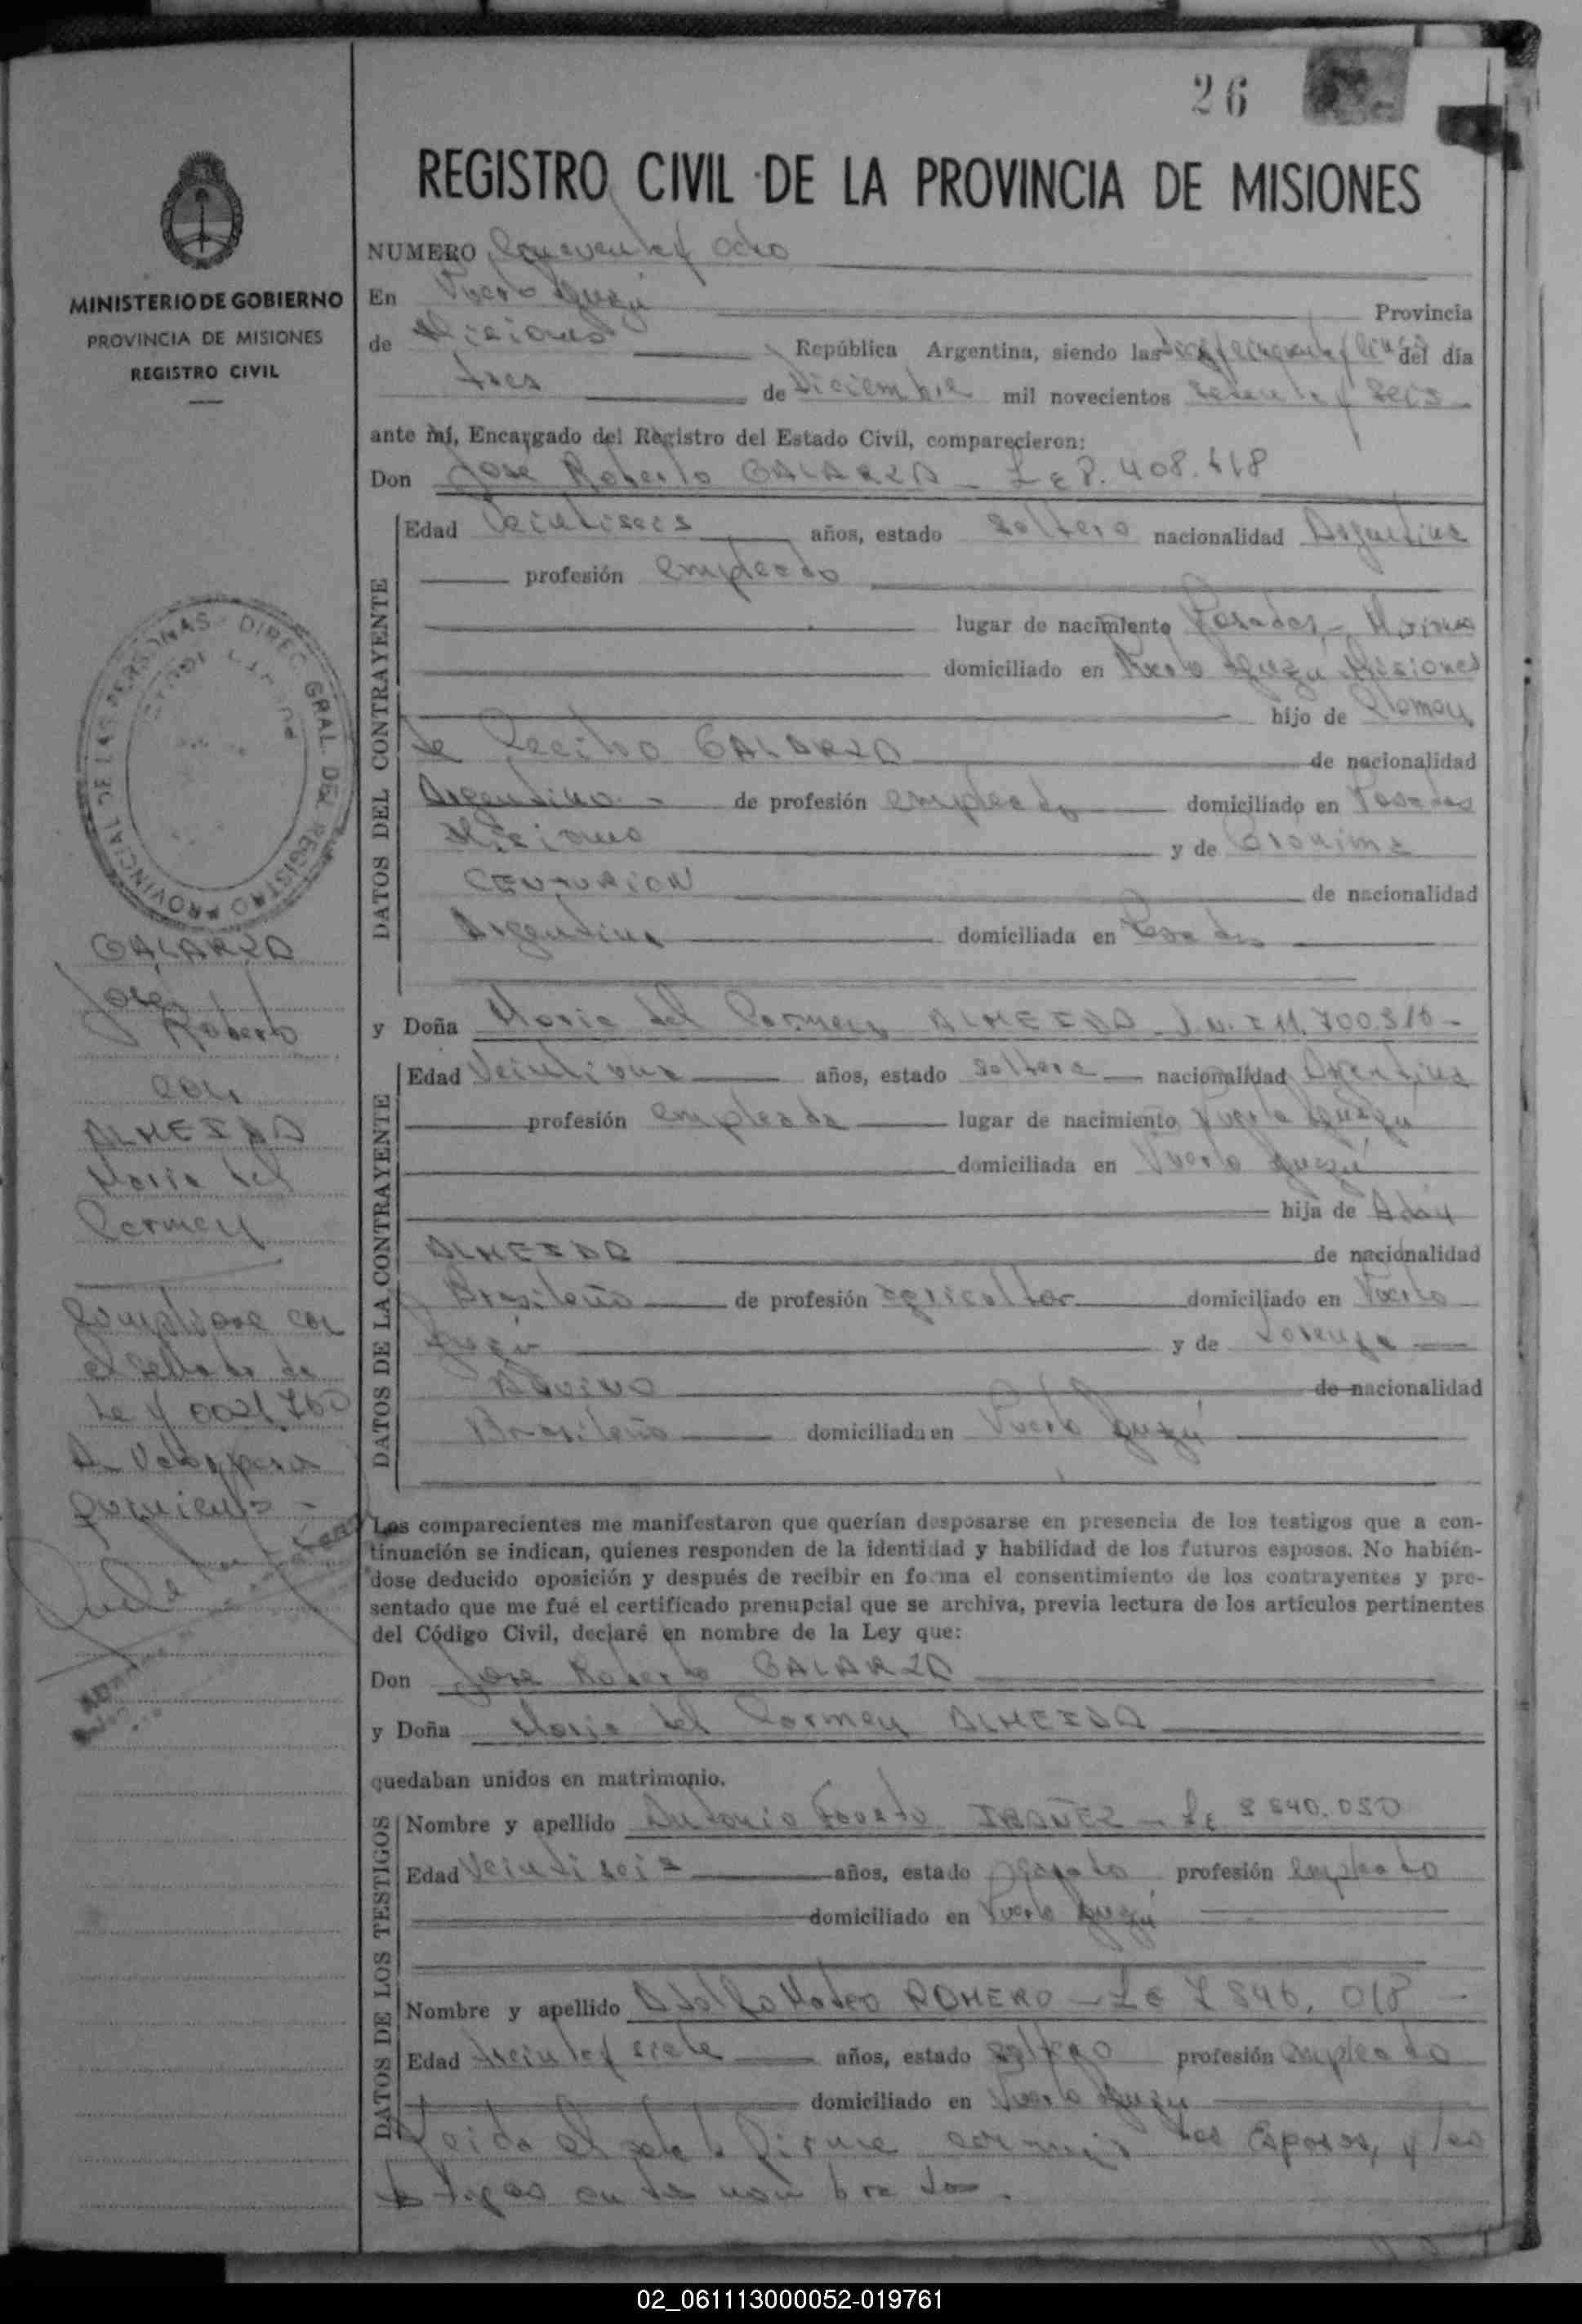 26
REGISTRO CIVIL DE LA PROVINCIA DE MISIONES
MINISTERIO DE GOBIERNO
PROVINCIA DE MISIONES
REGISTRO CIVIL
NUMERO y ocho
En Puerto Iguazú Provincia
de Misiones República Argentina, siendo las del día
tres de Diciembre mil novecientos setenta y seis
ante mí, Encargado del Registro del Estado Civil, comparecieron:
Don Jose Roberto GALARZA - L E 8.408.418
DATOS DEL CONTRAYENTE
Edad Veintiseis años, estado soltero nacionalidad Argentina
profesión empleado
lugar de nacimiento Posadas - Misiones
domiciliado en Puerto Iguazú Misiones
hijo de Clemen
te Cecilio GALARZA de nacionalidad
Argentina - de profesión empleado domiciliado en Posadas
Misiones y de Gronima
CENTURION de nacionalidad
Argentina domiciliada en Posadas
y Doña Maria del Carmen ALMEIDA D.N.I 11.700.310 -
DATOS DE LA CONTRAYENTE
Edad Veintiuna años, estado soltera nacionalidad Argentina
profesión empleada lugar de nacimiento Puerto Iguazú
domiciliada en Puerto Iguazú
hija de Adán
ALMEIDA de nacionalidad
Brasileña de profesión agricultor domiciliado en Puerto
Iguazú y de Lorenza
AQUINO de nacionalidad
Brasileña domiciliada en Puerto Iguazú
Los comparecientes me manifestaron que querían desposarse en presencia de los testigos que a con-
tinuación se indican, quienes responden de la identidad y habilidad de los futuros esposos. No habién-
dose deducido oposición y después de recibir en forma el consentimiento de los contrayentes y pre-
sentado que me fué el certificado prenupcial que se archiva, previa lectura de los artículos pertinentes
del Código Civil, declaré en nombre de la Ley que:
Don Jose Roberto GALARZA
y Doña Maria del Carmen ALMEIDA
quedaban unidos en matrimonio.
DATOS DE LOS TESTIGOS
Nombre y apellido Antonio Fausto IBAÑEZ - LE 8 540.050
Edad Veintiseis años, estado casado profesión empleado
domiciliado en Puerto Iguazú
Nombre y apellido Adolfo Mateo ROMERO - LE 7 846.018 -
Edad treinta y siete años, estado soltero profesión empleado
domiciliado en Puerto Iguazú
Leida el acta la firman conmigo los Esposos, y los
testigos antes nombrados.
DIREC. GRAL. DEL REGISTRO PROVINCIAL DE LAS PERSONAS
GALARZA
Jose
Roberto
con
ALMEIDA
Maria del
Carmen
con
el sellado de
Ley 0021/760
02_061113000052-019761